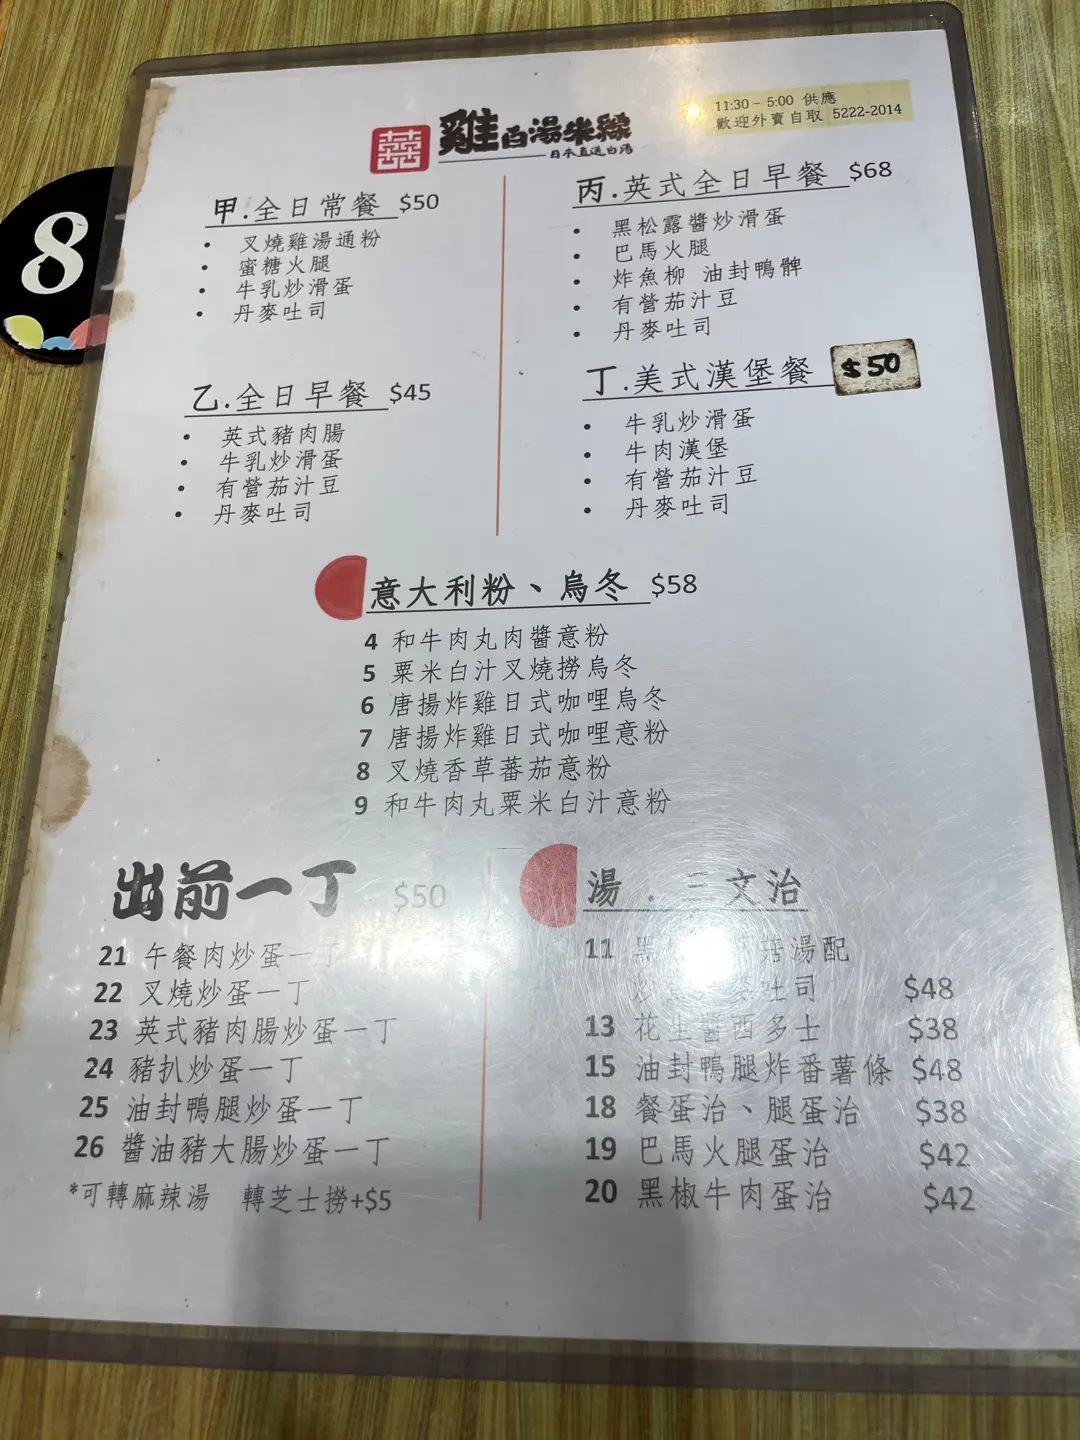 11:30 – 5:00 供應
歡迎外賣自取 5222-2014
囍 雞白湯米線
日本直送白湯
甲.全日常餐 $50
• 叉燒雞湯通粉
• 蜜糖火腿
• 牛乳炒滑蛋
• 丹麥吐司
乙.全日早餐 $45
• 英式豬肉腸
• 牛乳炒滑蛋
• 有營茄汁豆
• 丹麥吐司
丙.英式全日早餐 $68
• 黑松露醬炒滑蛋
• 巴馬火腿
• 炸魚柳 油封鴨髀
• 有營茄汁豆
• 丹麥吐司
丁.美式漢堡餐 $50
• 牛乳炒滑蛋
• 牛肉漢堡
• 有營茄汁豆
• 丹麥吐司
意大利粉、烏冬 $58
4 和牛肉丸肉醬意粉
5 粟米白汁叉燒撈烏冬
6 唐揚炸雞日式咖哩烏冬
7 唐揚炸雞日式咖哩意粉
8 叉燒香草蕃茄意粉
9 和牛肉丸粟米白汁意粉
出前一丁 $50
21 午餐肉炒蛋一丁
22 叉燒炒蛋一丁
23 英式豬肉腸炒蛋一丁
24 豬扒炒蛋一丁
25 油封鴨腿炒蛋一丁
26 醬油豬大腸炒蛋一丁
*可轉麻辣湯 轉芝士撈+$5
湯．三文治
11 黑 菇湯配
炒 吐司 $48
13 花生醬西多士 $38
15 油封鴨腿炸番薯條 $48
18 餐蛋治、腿蛋治 $38
19 巴馬火腿蛋治 $42
20 黑椒牛肉蛋治 $42
8